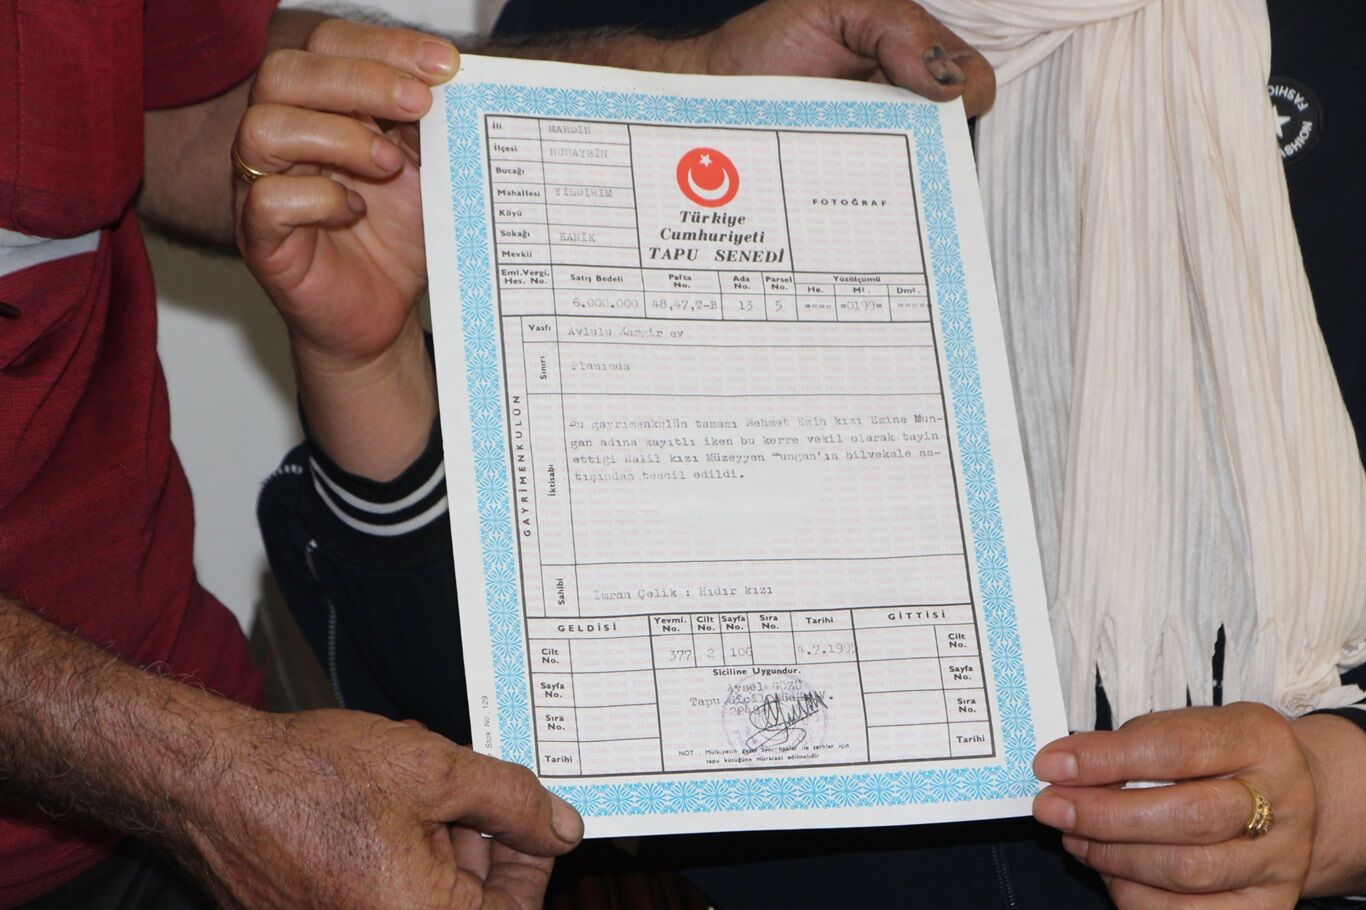 İli MARDİN
İlçesi NUSAYBİN
Bucağı
Mahallesi YILDIRIM
Köyü
Sokağı KANİK
Mevkii
Türkiye
Cumhuriyeti
TAPU SENEDİ
FOTOĞRAF
Eml.Vergi. Hes. No.
Satış Bedeli
Pafta No.
Ada No.
Parsel No.
Yüzölçümü
He. M². Dm².
6.000.000 48,47,T-B 13 5 ==== =0199= ====
GAYRİMENKULÜN
Vasfı Avlulu Kargir ev
Sınırı Planında
İktisabı
Bu gayrımenkülün tamamı Mehmet Emin kızı Emine Mun-
gan adına kayıtlı iken bu kerre vekil olarak tayin
ettiği Halil kızı Müzeyyen ungan'ın bilvekale sa-
tışından tescil edildi.
Sahibi İmran Çelik : Hıdır kızı
GELDİSİ
Yevmi. No. Cilt No. Sayfa No. Sıra No. Tarihi
GİTTİSİ
377 2 106 4.7.199
Cilt No.
Sayfa No.
Sıra No.
Tarihi
Siciline Uygundur.
Aysel GÖZÜ
Tapu Sicil
Cilt No.
Sayfa No.
Sıra No.
Tarihi
NOT : Mülkiyetin gayri ayni haklar ile şerhler için
tapu kütüğüne müracaat edilmelidir
Stok No. 129
FASHION